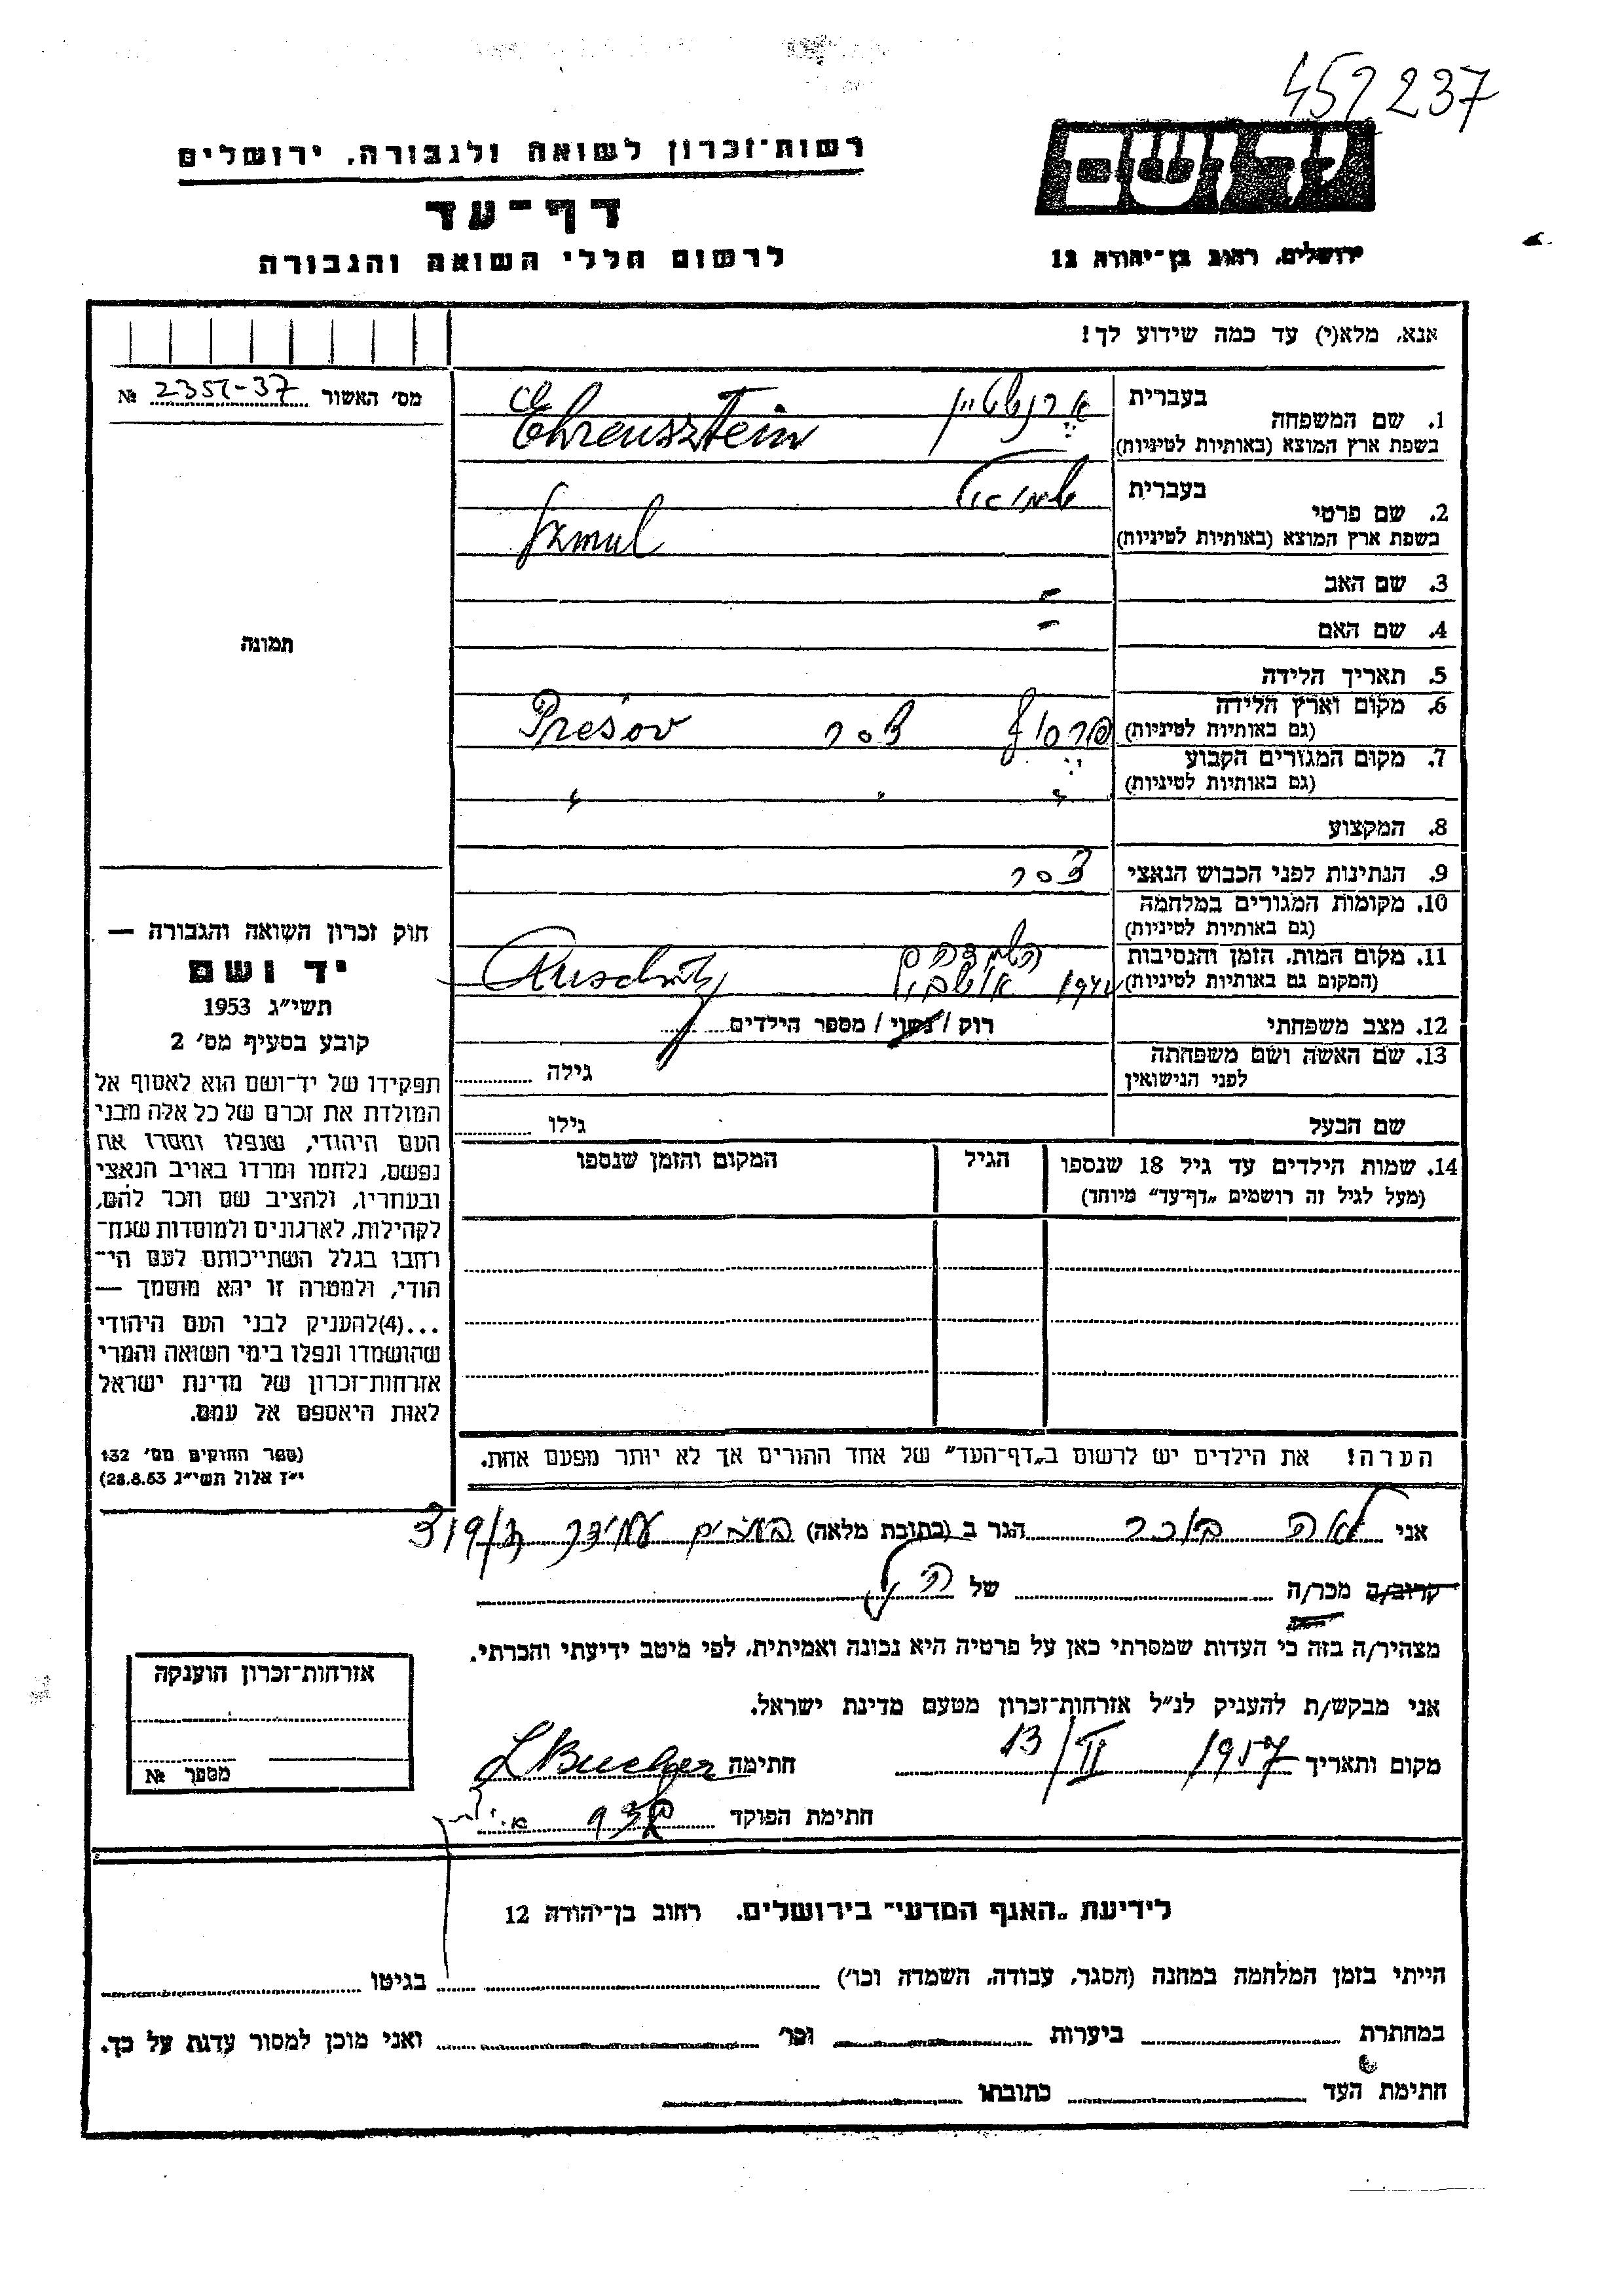 457237
יד ושם
רשות־זכרון לשואה ולגבורה, ירושלים
דף־עד
לרשום חללי השואה והגבורה
ירושלים, רחוב בן־יהודה 12
אנא, מלא(י) עד כמה שידוע לך!
מס' האשור № 2357-37
תמונה
חוק זכרון השואה והגבורה —
יד ושם
תשי"ג 1953
קובע בסעיף מס' 2
תפקידו של יד־ושם הוא לאסוף אל
המולדת את זכרם של כל אלה מבני
העם היהודי, שנפלו ומסרו את
נפשם, נלחמו ומרדו באויב הנאצי
ובעוזריו, ולהציב שם וזכר להם,
לקהילות, לארגונים ולמוסדות שנח־
רחבו בגלל השתייכותם לעם הי־
הודי, ולמטרה זו יהא מוסמך —
...(4)להעניק לבני העם היהודי
שהושמדו ונפלו בימי השואה והמרי
אזרחות־זכרון של מדינת ישראל
לאות היאספם אל עמם.
(ספר החוקים מס' 132
י"ז אלול תשי"ג 28.8.53)
בעברית
1. שם המשפחה
בשפת ארץ המוצא (באותיות לטיניות)
ארנשטיין
Ehrensztein
בעברית
2. שם פרטי
בשפת ארץ המוצא (באותיות לטיניות)
שמואל
Szmul
3. שם האב -
4. שם האם -
5. תאריך הלידה
6. מקום וארץ הלידה
(גם באותיות לטיניות)
צ'כר Prešov
7. מקום המגורים הקבוע
(גם באותיות לטיניות)
" " "
8. המקצוע
9. הנתינות לפני הכבוש הנאצי צ'כר
10. מקומות המגורים במלחמה
(גם באותיות לטיניות)
11. מקום המות, הזמן והנסיבות
(המקום גם באותיות לטיניות)
Auschwitz
12. מצב משפחתי רוק / נשוי / מספר הילדים
13. שם האשה ושם משפחתה
לפני הנישואין
גילה
שם הבעל גילו
14. שמות הילדים עד גיל 18 שנספו
(מעל לגיל זה רושמים „דף־עד" מיוחד)
הגיל
המקום והזמן שנספו
הערה! את הילדים יש לרשום ב„דף־העד" של אחד ההורים אך לא יותר מפעם אחת.
אני לאה בוכר הגר ב (כתובת מלאה)
קרוב/ה מכר/ה של הנ"ל
מצהיר/ה בזה כי העדות שמסרתי כאן על פרטיה היא נכונה ואמיתית, לפי מיטב ידיעתי והכרתי.
אני מבקש/ת להעניק לנ"ל אזרחות־זכרון מטעם מדינת ישראל.
מקום ותאריך 1957 13/II חתימה L Bucher
חתימת הפוקד
אזרחות־זכרון הוענקה
מספר №
לידיעת „האגף המדעי" בירושלים, רחוב בן־יהודה 12
הייתי בזמן המלחמה במחנה (הסגר, עבודה, השמדה וכו') בגיטו
במחתרת ביערות וכו' ואני מוכן למסור עדות על כך.
חתימת העד כתובתו